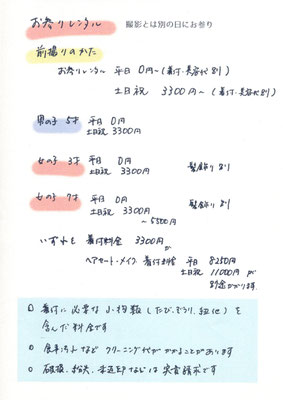 お参りレンタル 撮影とは別の日にお参り
前撮りのかた
お参りレンタル 平日 0円~(着付・美容代別)
土日祝 3300円~(着付・美容代別)
男の子 5才 平日 0円
土日祝 3300円
女の子 3才 平日 0円 髪飾り別
土日祝 3300円
女の子 7才 平日 0円 髪飾り別
土日祝 3300円
~5500円
いずれも 着付料金 3300円
が
ヘアセット・メイク・着付料金 平日 8250円
土日祝 11000円が
別途かかります。
○ 着付に必要な小物類(たび、ぞうり、紐他)を
含んだ料金です
○ 食事汚れなど クリーニング代がかかることがあります
○ 破損・紛失・など は実費請求です